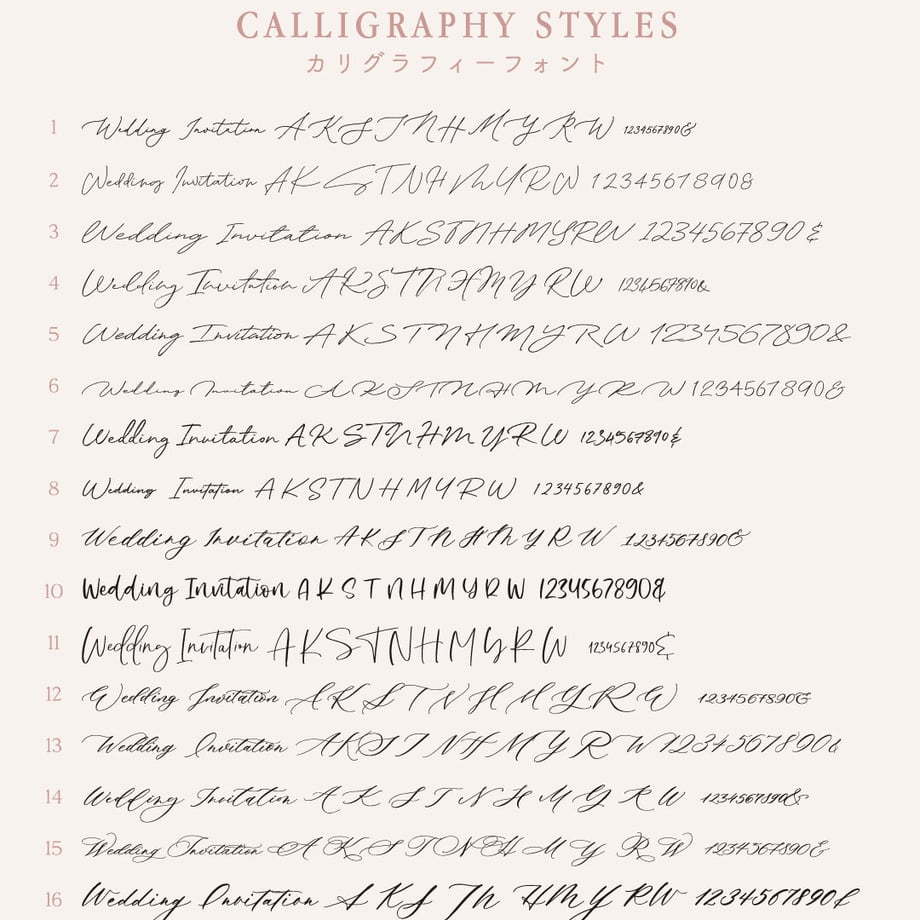 CALLIGRAPHY STYLES
カリグラフィーフォント
1 Wedding Invitation AKSTNHMYRW 1234567890&
2 Wedding Invitation AKSTNHMYRW 1234567890&
3 Wedding Invitation AKSTNHMYRW 1234567890&
4 Wedding Invitation AKSTNHMYRW 1234567890&
5 Wedding Invitation AKSTNHMYRW 1234567890&
6 Wedding Invitation AKSTNHMYRW 1234567890&
7 Wedding Invitation AKSTNHMYRW 1234567890&
8 Wedding Invitation AKSTNHMYRW 1234567890&
9 Wedding Invitation AKSTNHMYRW 1234567890&
10 Wedding Invitation AKSTNHMYRW 1234567890&
11 Wedding Invitation AKSTNHMYRW 1234567890&
12 Wedding Invitation AKSTNHMYRW 1234567890&
13 Wedding Invitation AKSTNHMYRW 1234567890&
14 Wedding Invitation AKSTNHMYRW 1234567890&
15 Wedding Invitation AKSTNHMYRW 1234567890&
16 Wedding Invitation AKSTNHMYRW 1234567890&